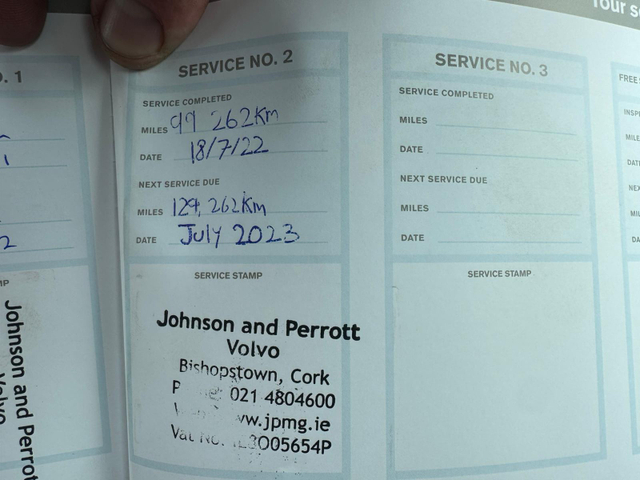 Your se
O. 1
SERVICE NO. 2
SERVICE COMPLETED
MILES 97 262Km
DATE 18/7/22
NEXT SERVICE DUE
MILES 129,262Km
DATE July 2023
SERVICE STAMP
Johnson and Perrott
Volvo
Bishopstown, Cork
021 4804600
vw.jpmg.ie
Vat No. 005654P
SERVICE NO. 3
SERVICE COMPLETED
MILES
DATE
NEXT SERVICE DUE
MILES
DATE
SERVICE STAMP
FREE
INSP
MILE
DATE
NEX
MILE
DA
Johnson and Perrot
Volvo